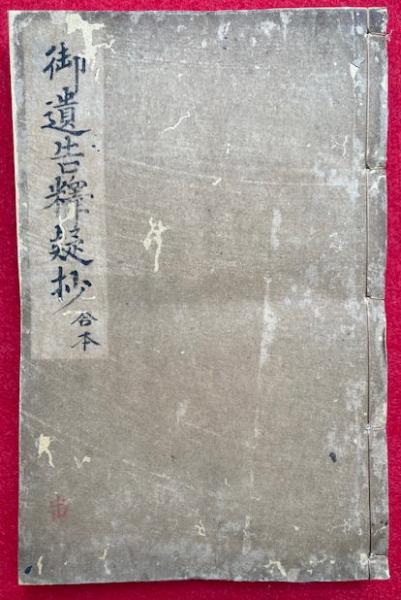 御遺告釋疑抄
合本